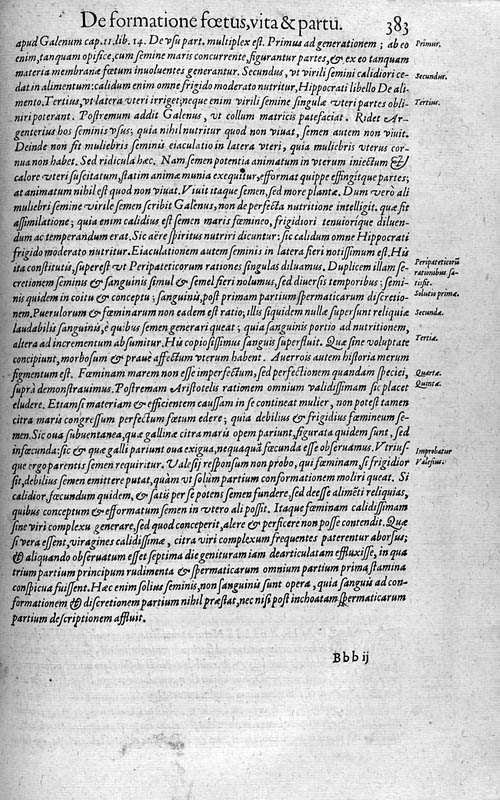 De formatione fœtus, vita & partu. 383
apud Galenum cap. 11. lib. 14. De vſu part. multiplex eſt. Primus ad generationem ; ab eo
Primus.
enim, tanquam opifice, cum ſemine maris concurrente, figurantur partes, & ex eo tanquam
materia membranæ fœtum inuoluentes generantur. Secundus, vt virili ſemini calidiori ce-
Secundus.
dat in alimentum: calidum enim omne frigido moderato nutritur, Hippocrati libello De ali-
mento. Tertius, vt latera vteri irriget; neque enim virili ſemine ſingulæ vteri partes obli-
Tertius.
niri poterant. Poſtremum addit Galenus, vt collum matricis patefaciat. Ridet Ar-
genterius hos ſeminis vſus; quia nihil nutritur quod non viuat, ſemen autem non viuit.
Deinde non fit muliebris ſeminis eiaculatio in latera vteri, quia muliebris vterus cor-
nua non habet. Sed ridicula hæc. Nam ſemen potentia animatum in vterum iniectum &
calore vteri ſuſcitatum, ſtatim animæ munia exequitur, efformat quippe effingitque partes;
at animatum nihil eſt quod non viuat. Viuit itaque ſemen, ſed more plantæ. Dum verò ali
muliebri ſemine virile ſemen ſcribit Galenus, non de perfecta nutritione intelligit. quæ fit
aſſimilatione ; quia enim calidius eſt ſemen maris fœmineo, frigidiori tenuiorique diluen-
dum ac temperandum erat. Sic aëre ſpiritus nutriri dicuntur: ſic calidum omne Hippocrati
frigido moderato nutritur. Eiaculationem autem ſeminis in latera fieri notiſſimum eſt. His
ita conſtitutis, ſupereſt vt Peripateticorum rationes ſingulas diluamus. Duplicem illam ſe-
Peripateticorū
rationibus ſa-
cretionem ſeminis & ſanguinis ſimul & ſemel fieri nolumus, ſed diuerſis temporibus ; ſemi-
tisfit.
nis quidem in coitu & conceptu ; ſanguinis, poſt primam partium ſpermaticarum diſcretio-
Solutio primæ.
nem. Puerulorum & fœminarum non eadem eſt ratio; illis ſiquidem nullæ ſuperſunt reliquiæ
Secundæ.
laudabilis ſanguinis, è quibus ſemen generari queat ; quia ſanguinis portio ad nutritionem,
altera ad incrementum abſumitur. His copioſiſſimus ſanguis ſuperfluit. Quæ ſine voluptate
Tertiæ.
concipiunt, morboſum & prauè affectum vterum habent. Auerrois autem hiſtoria merum
figmentum eſt. Fœminam marem non eſſe imperfectum, ſed perfectionem quandam ſpeciei,
Quartæ.
ſuprà demonſtrauimus. Poſtremam Ariſtotelis rationem omnium validiſſimam ſic placet
Quintæ.
eludere. Etiamſi materiam & efficientem cauſſam in ſe contineat mulier, non poteſt tamen
citra maris congreſſum perfectum fœtum edere ; quia debilius & frigidius fœmineum ſe-
men. Sic oua ſubuentanea, quæ gallinæ citra maris opem pariunt, figurata quidem ſunt, ſed
infœcunda; ſic & quæ galli pariunt oua exigua, nequaquā fœcunda eſſe obſeruamus. Vtriuſ-
que ergo parentis ſemen requiritur. Valeſij reſponſum non probo, qui fœminam, ſi frigidior
Improbatur
Valeſius.
ſit, debilius ſemen emittere putat, quàm vt ſolùm partium conformationem moliri queat. Si
calidior, fœcundum quidem, & ſatis per ſe potens ſemen fundere, ſed deeſſe alimēti reliquias,
quibus conceptum & efformatum ſemen in vtero ali poſſit. Itaque fœminam calidiſſimam
ſine viri complexu generare, ſed quod conceperit, alere & perficere non poſſe contendit. Quæ
ſi vera eſſent, viragines calidiſſimæ, citra viri complexum frequentes paterentur aborſus;
& aliquando obſeruatum eſſet ſeptima die genituram iam dearticulatam effluxiſſe, in qua
trium partium principum rudimenta & ſpermaticarum omnium partium prima ſtamina
conſpicua fuiſſent. Hæc enim ſolius ſeminis, non ſanguinis ſunt opera, quia ſanguis ad con-
formationem & diſcretionem partium nihil præſtat, nec niſi poſt inchoatam ſpermaticarum
partium deſcriptionem affluit.
Bbb ij